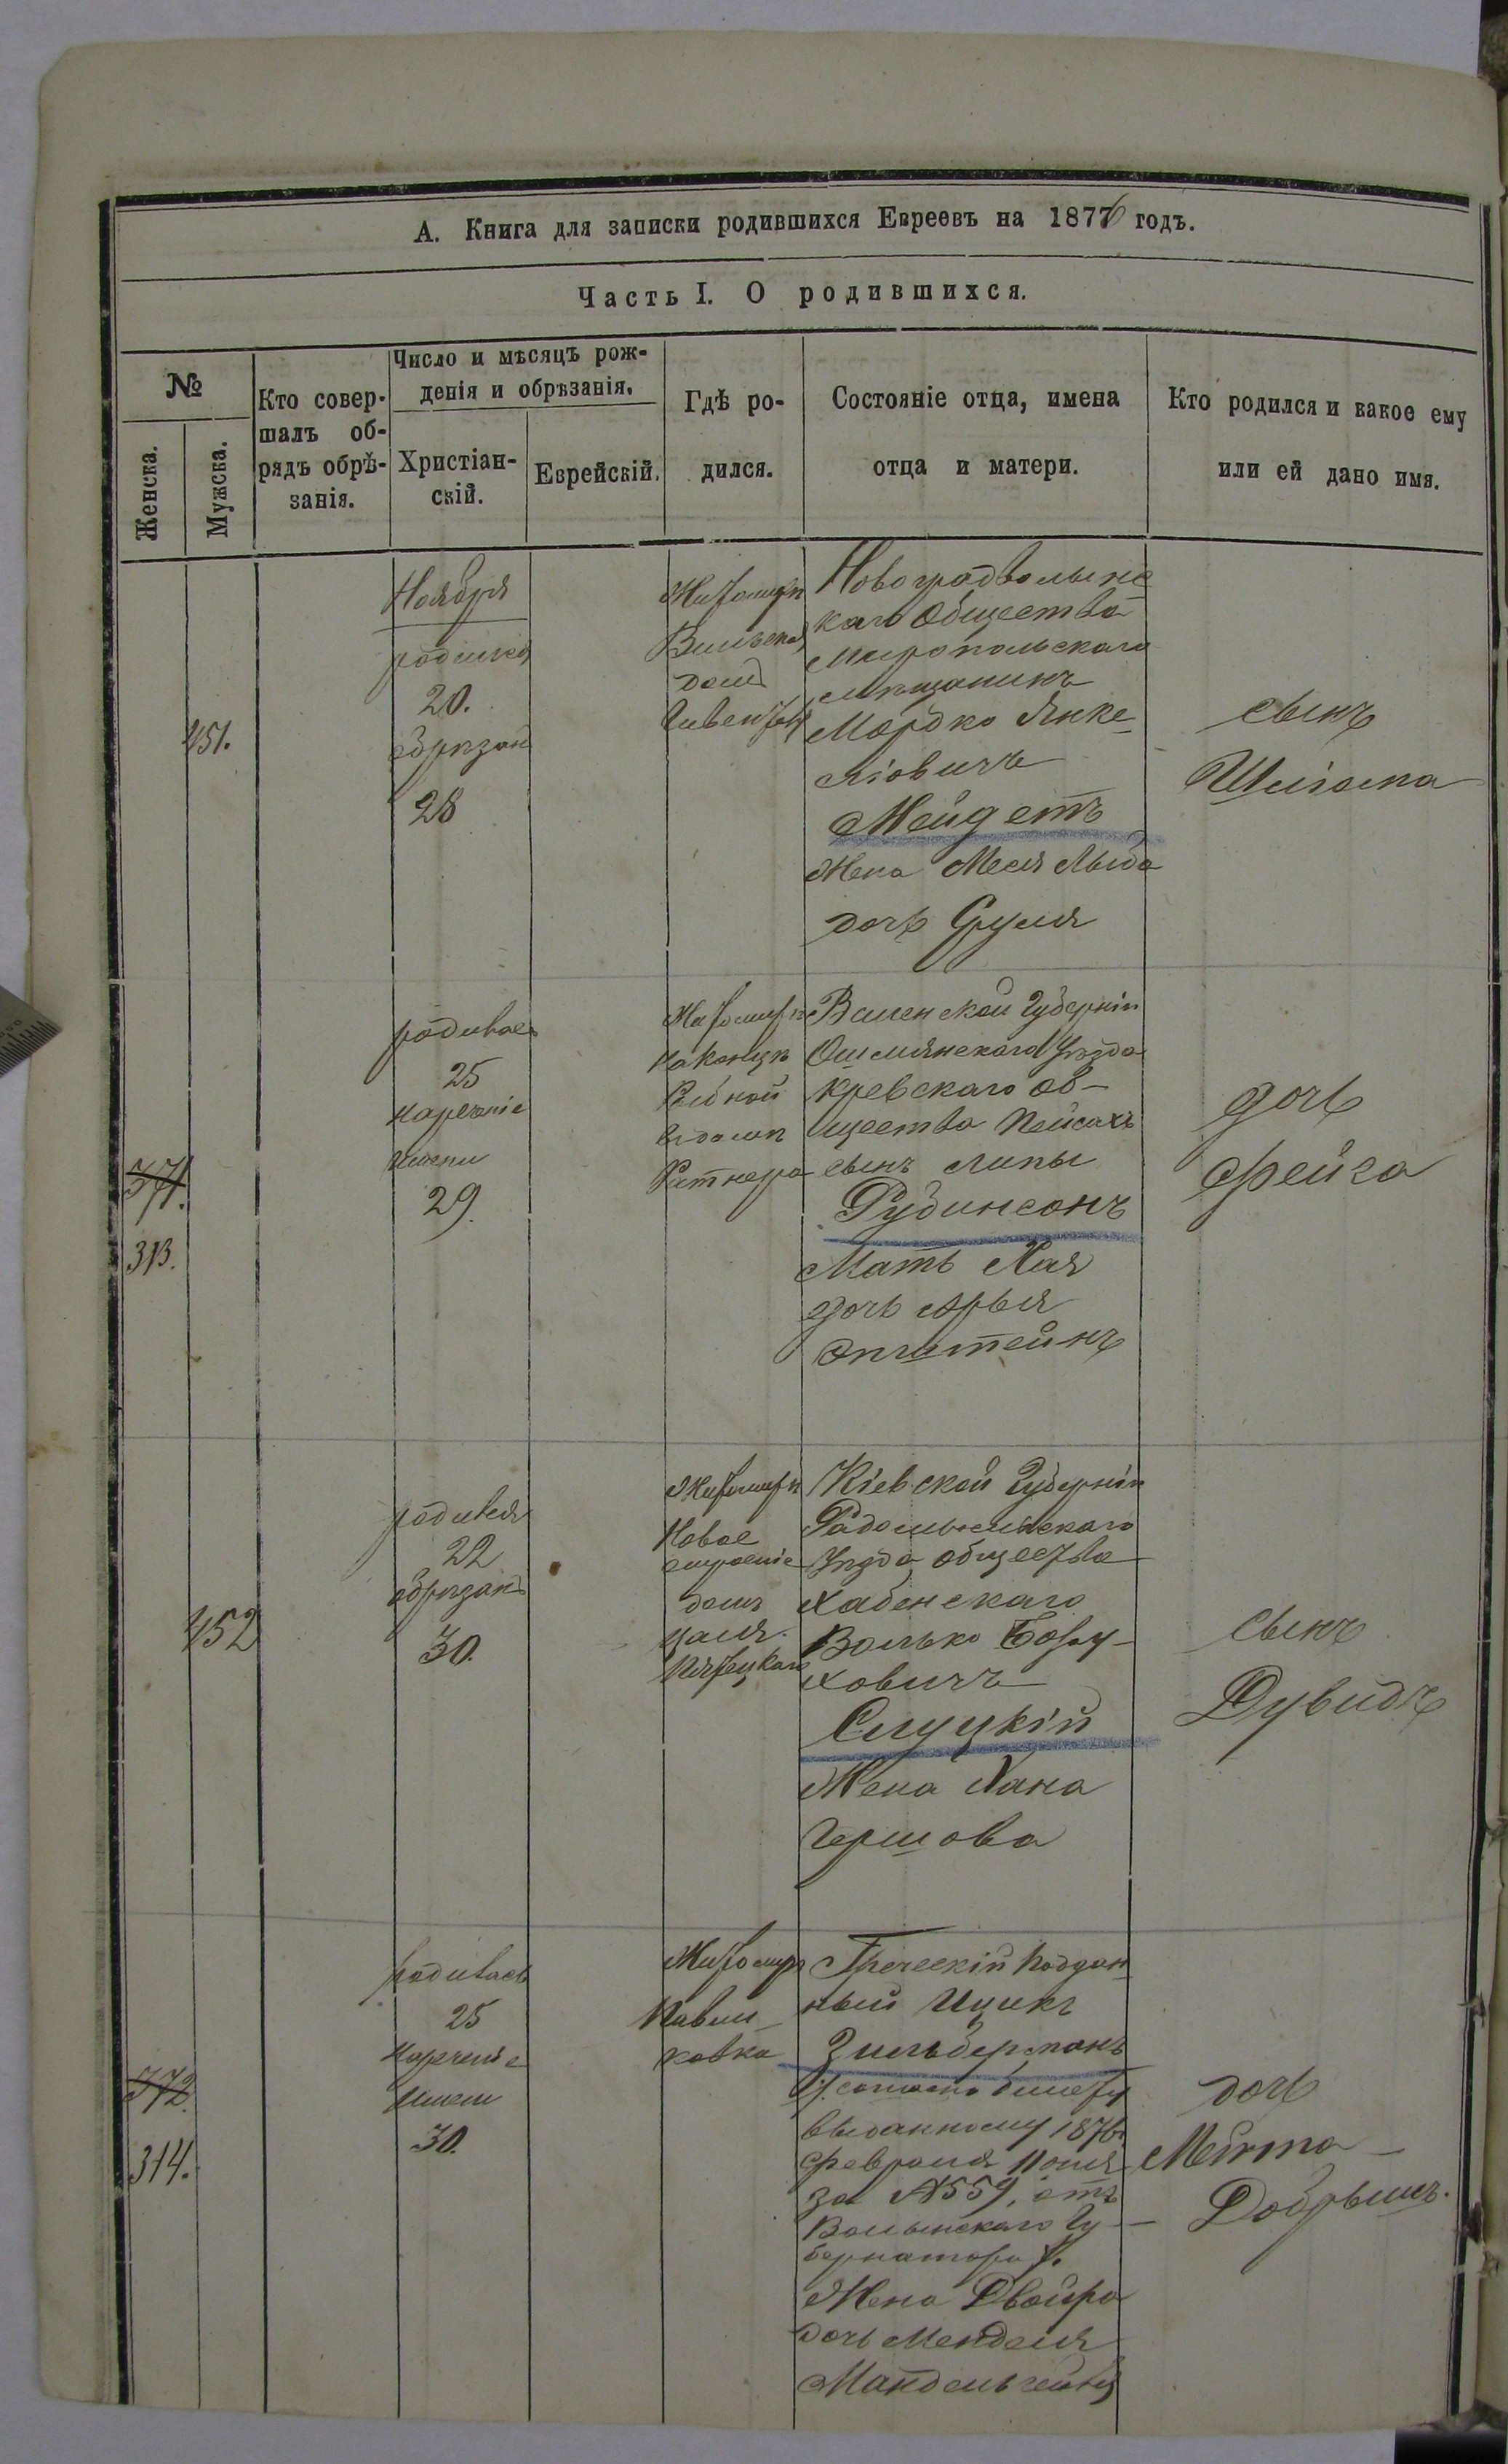 А. Книга для записки родившихся Евреевъ на 1876 годъ.
Часть I. О родившихся.
№
Женска.
Мужска.
Кто совер-
шалъ об-
рядъ обрѣ-
занія.
Число и мѣсяцъ рож-
денія и обрѣзанія.
Христіан-
скій.
Еврейскій.
Гдѣ ро-
дился.
Состояніе отца, имена
отца и матери.
Кто родился и какое ему
или ей дано имя.
451.
Ноября
родился
20.
обрѣзан
28
Житомирѣ
Вильская
домъ
Новоградволынс
каго Общества
Миропольскаго
мѣщанинъ
Мордко Янке-
ліовичъ
Мейдетъ
Жена Меся Лыба
дочь Сруля
сынъ
Шліома
371.
313.
родилась
25
нареченіе
имени
29.
Житомирѣ
на концѣ
Рыбной
въ домѣ
Ратнера
Виленской Губерніи
Ошмянскаго Уѣзда
Кревскаго Об-
щества Пейсахъ
сынъ Липы
Рудинсонъ
Мать Хая
дочь Арья
Эпштейнъ
дочь
Фейга
452
родился
22
обрѣзанъ
30.
Житомирѣ
Новое
строеніе
домъ
Кіевской Губерніи
Радомысльскаго
Уѣзда общества
Хабенскаго
Волько Бору-
ховичъ
Слуцкій
Жена Хана
Гершова
сынъ
Дувидъ
372.
314.
родилась
25
нареченіе
имени
30.
Житомирѣ
Павли-
ковка
Греческій поддан-
ный Ицикъ
Зильберманъ
согласно билету
выданному 1876г.
Февраля 11 дня
за №559, отъ
Волынскаго Гу-
бернатора).
Жена Двойра
дочь Менделя
дочь
Добрышъ.